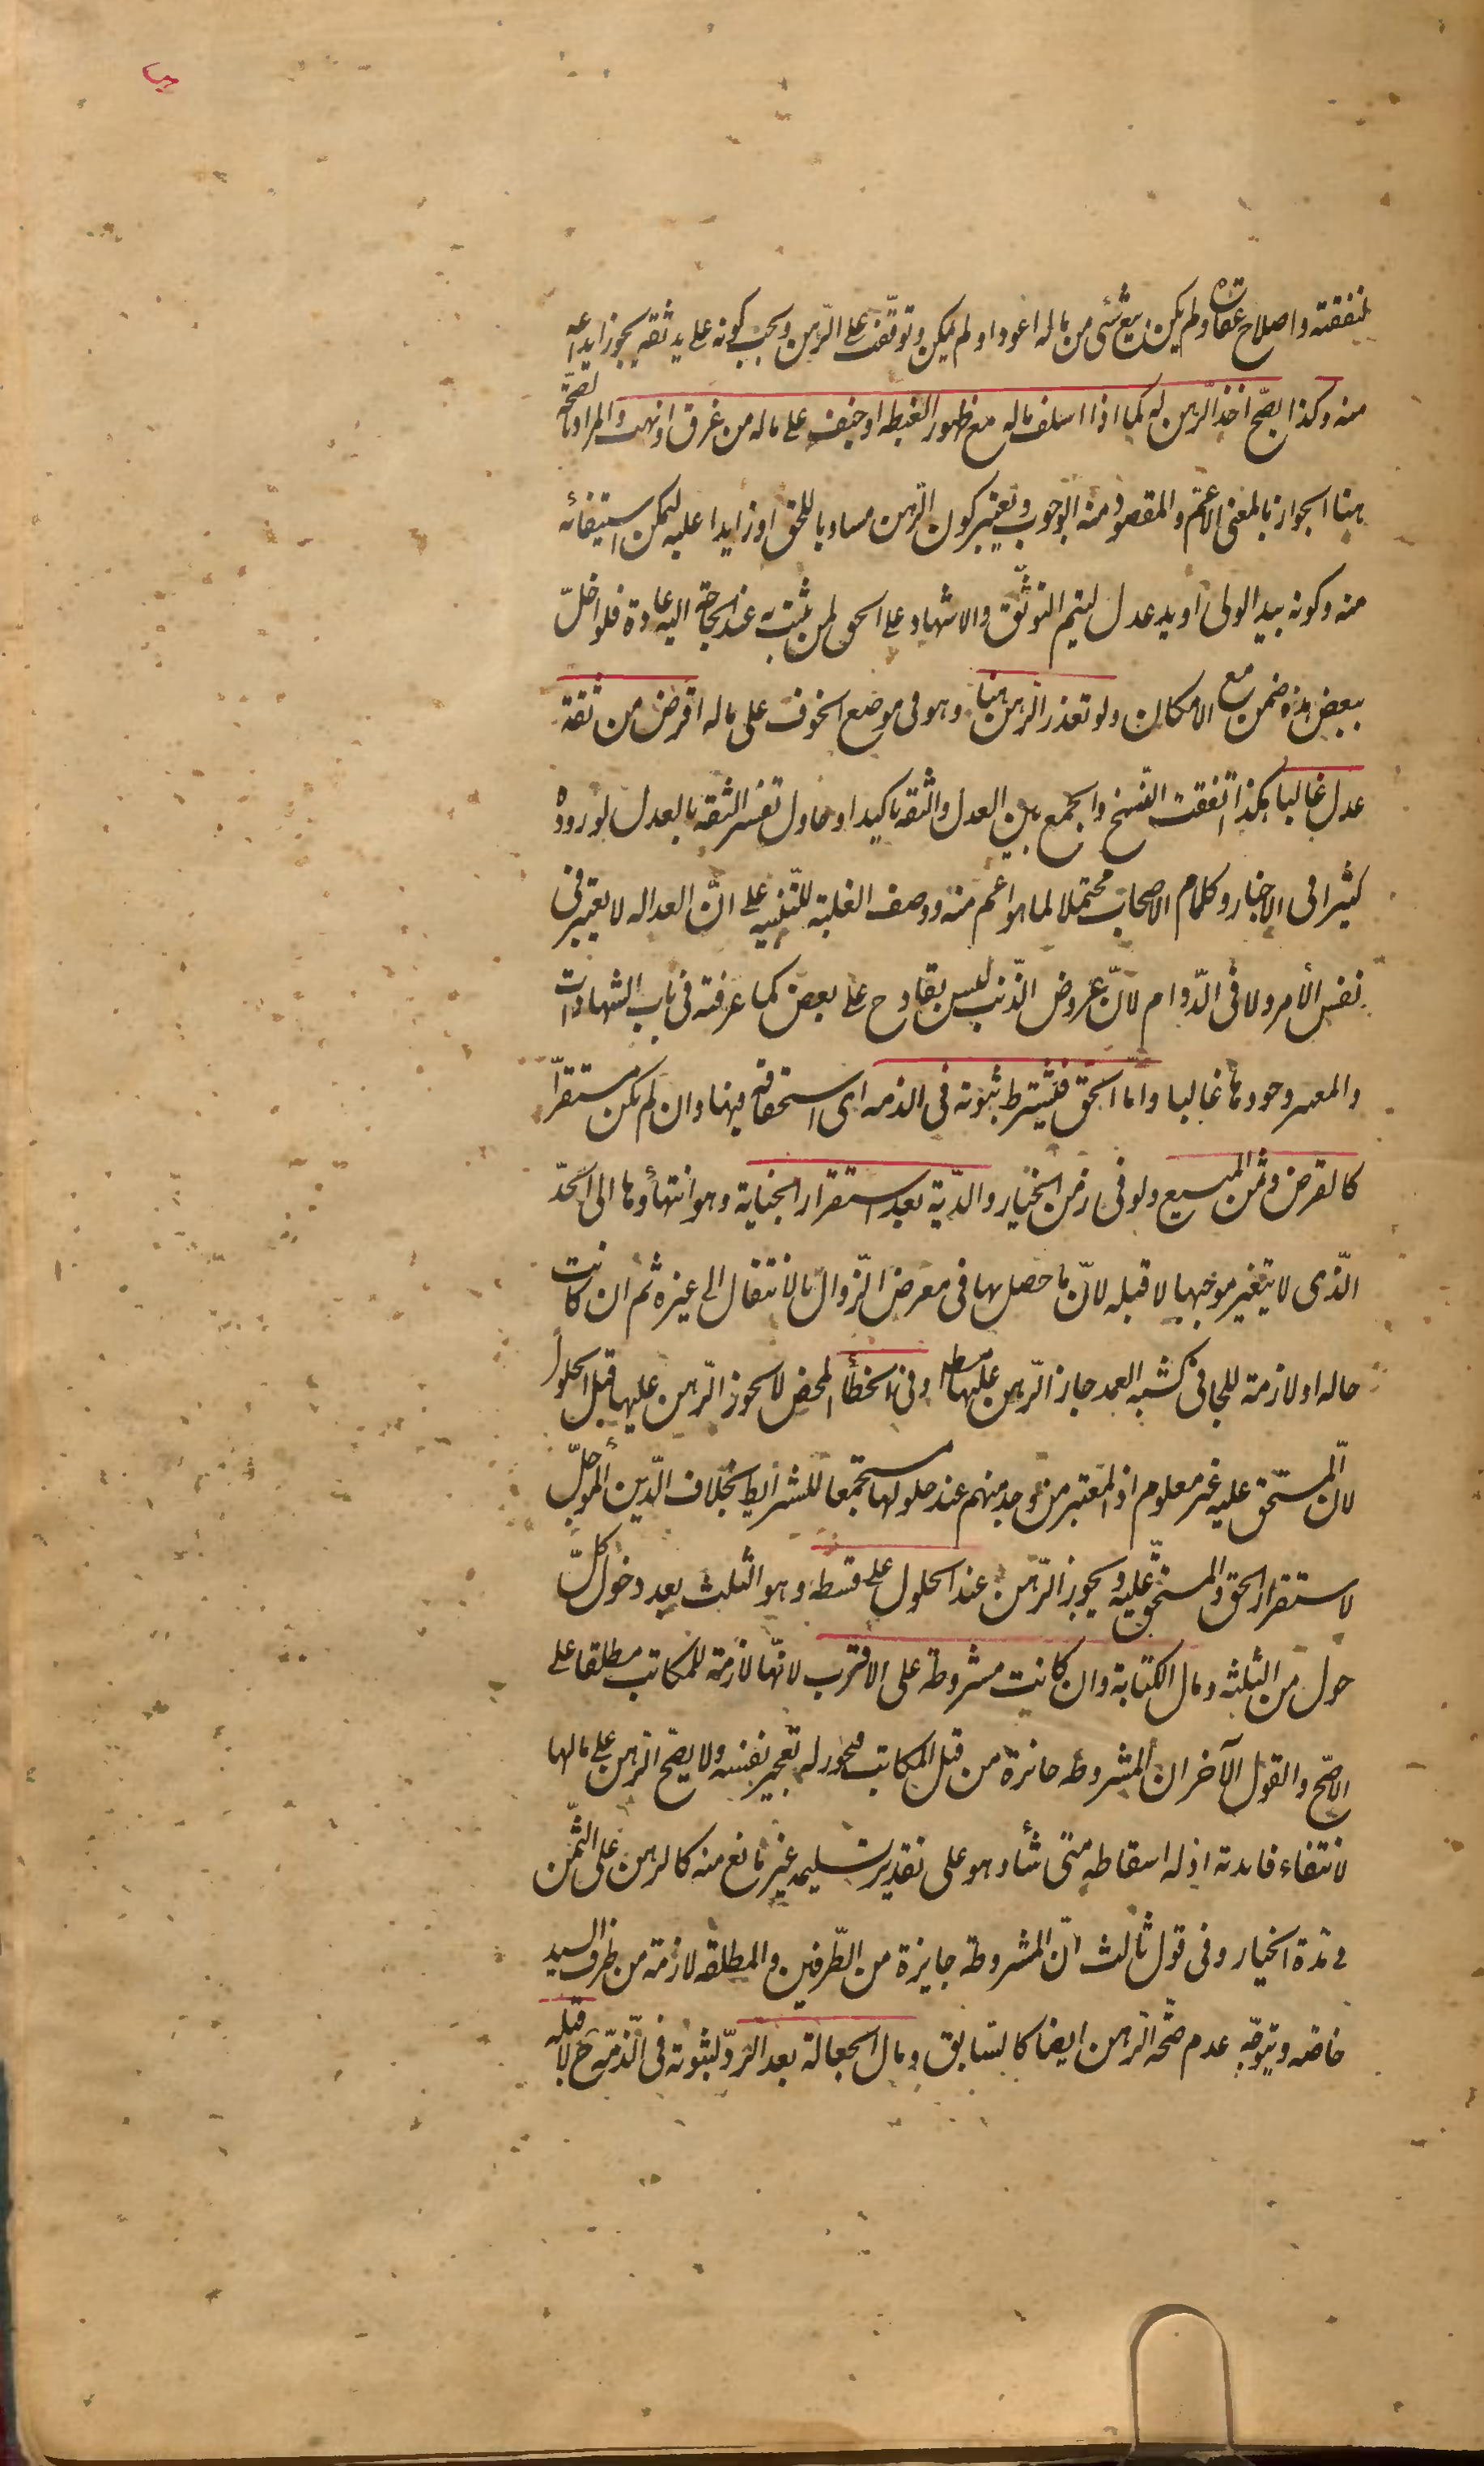 لنفقته و اصلاح عقاره ولم يكن بيع شئى من ماله اعود او لم يمكن و توقف على الرّهن و يجب كونه على يد ثقه يجوز ايداعه
منه و كذا يصحّ اخذ الرّهن له كما اذا اسلف ماله مع ظهور الغبطه او خيف على ماله من غرق او نهب و المراد بالصّحة
هنا الجواز بالمعنى الاعمّ و المقصود منه الوجوب و يعتبر كون الرّهن مساويا للحق او زايدا عليه ليمكن استيفائه
منه و كونه بيد الولى او يد عدل ليتم التوثّق و الاشهاد على الحق لمن يثبت به عند الحاجة اليه عادة فلو اخلّ
ببعض هذه ضمن مع الامكان ولو تعذر الرهن هنا و هو فى موضع الخوف على ماله اقرض من ثقة
عدل غالبا هكذا اتّفقت النّسخ و الجمع بين العدل و الثقه تاكيد او حاول تفسير الثقه بالعدل لوروده
كثيرا فى الاخبار و كلام الاصحاب محتملا لما هو اعم منه و وصف الغلبة للتّنبيه على انّ العداله لا يعتبر فى
نفس الأمر ولا فى الدّوام لانّ عروض الذّنب ليس بقادح على بعض كما عرفته فى باب الشهادات
و المعتبر وجودها غالبا و امّا الحق فيشترط ثبوته فى الذمه اى استحقاقه فيها و ان لم يكن مستقرّا
كالقرض و ثمن المبيع ولو فى زمن الخيار و الدّية بعد استقرار الجناية و هو انتهأوها الى الحدّ
الّذى لا يتغير موجبها لا قبله لانّ ما حصل بها فى معرض الزّوال بالانتقال الى غيره ثم ان كانت
حاله او لازمة للجانى كشبه العمد جاز الرّهن عليها مط و فى الخطأ المحض لا يجوز الرّهن عليها قبل الحلول
لانّ المستحق عليه غير معلوم اذ المعتبر من وجد منهم عند حلولها مستجمعا للشرايط بخلاف الدّين المؤجلّ
لاستقرار الحق و المستحقّ عليه و يجوز الرّهن عند الحلول على قسطه و هو الثلث بعد دخول كلّ
حول من الثلثه و مال الكتابة و ان كانت مشروطة على الاقرب لانّها لازمة للمكاتب مطلقا على
الاصّح و القول الآخر ان المشروطه جائزة من قبل المكاتب فيجوز له تعجيز نفسه ولا يصّح الرهن على مالها
لانتفاء فايدته اذ له اسقاطه متى شأ و هو على تقدير تسليمه غير مانع منه كالرهن على الثّمن
فى مدّة الخيار و فى قول ثالث انّ المشروطة جايزة من الطّرفين و المطلقه لازمة من طرف السيد
خاصّه و يتوجّه عدم صحّة الرّهن ايضا كالسّابق و مال الجعالة بعد الردّ لثبوته فى الذّمة ح لا قبله